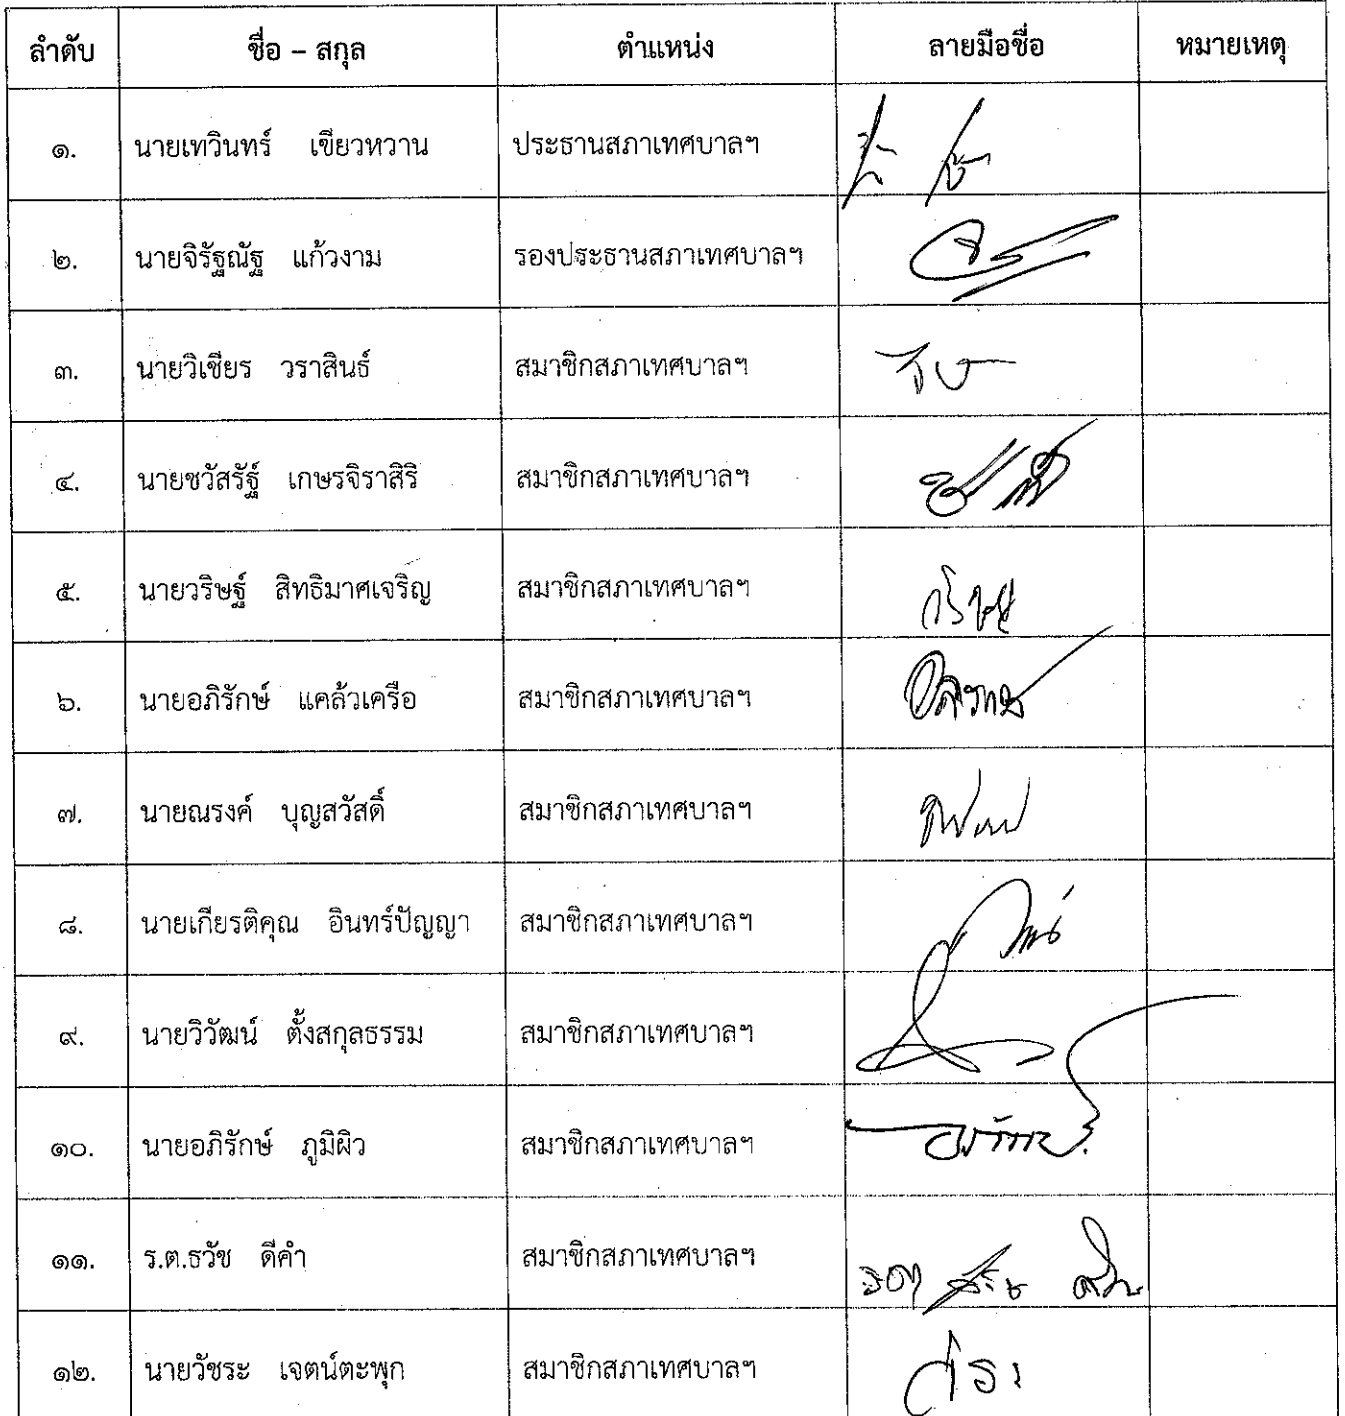 ลำดับ ชื่อ – สกุล ตำแหน่ง ลายมือชื่อ หมายเหตุ
๑. นายเทวินทร์ เขียวหวาน ประธานสภาเทศบาลฯ
๒. นายจิรัฐณัฐ แก้วงาม รองประธานสภาเทศบาลฯ
๓. นายวิเชียร วราสินธ์ สมาชิกสภาเทศบาลฯ
๔. นายชวัสรัฐ์ เกษรจิราสิริ สมาชิกสภาเทศบาลฯ
๕. นายวริษฐ์ สิทธิมาศเจริญ สมาชิกสภาเทศบาลฯ
๖. นายอภิรักษ์ แคล้วเครือ สมาชิกสภาเทศบาลฯ
๗. นายณรงค์ บุญสวัสดิ์ สมาชิกสภาเทศบาลฯ
๘. นายเกียรติคุณ อินทร์ปัญญา สมาชิกสภาเทศบาลฯ
๙. นายวิวัฒน์ ตั้งสกุลธรรม สมาชิกสภาเทศบาลฯ
๑๐. นายอภิรักษ์ ภูมิผิว สมาชิกสภาเทศบาลฯ
๑๑. ร.ต.ธวัช ดีคำ สมาชิกสภาเทศบาลฯ
๑๒. นายวัชระ เจตน์ตะพุก สมาชิกสภาเทศบาลฯ